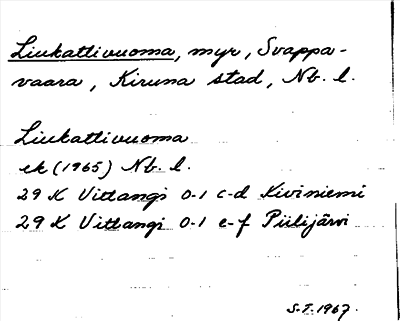 Liukattivuoma, myr, Svappa-
vaara, Kiruna stad, Nb. l.
Liukattivuoma
ek (1965) Nb. l.
29 K Vittangi 0-1 c-d Kiviniemi
29 K Vittangi 0-1 e-f Piilijärvi
S.T. 1967.